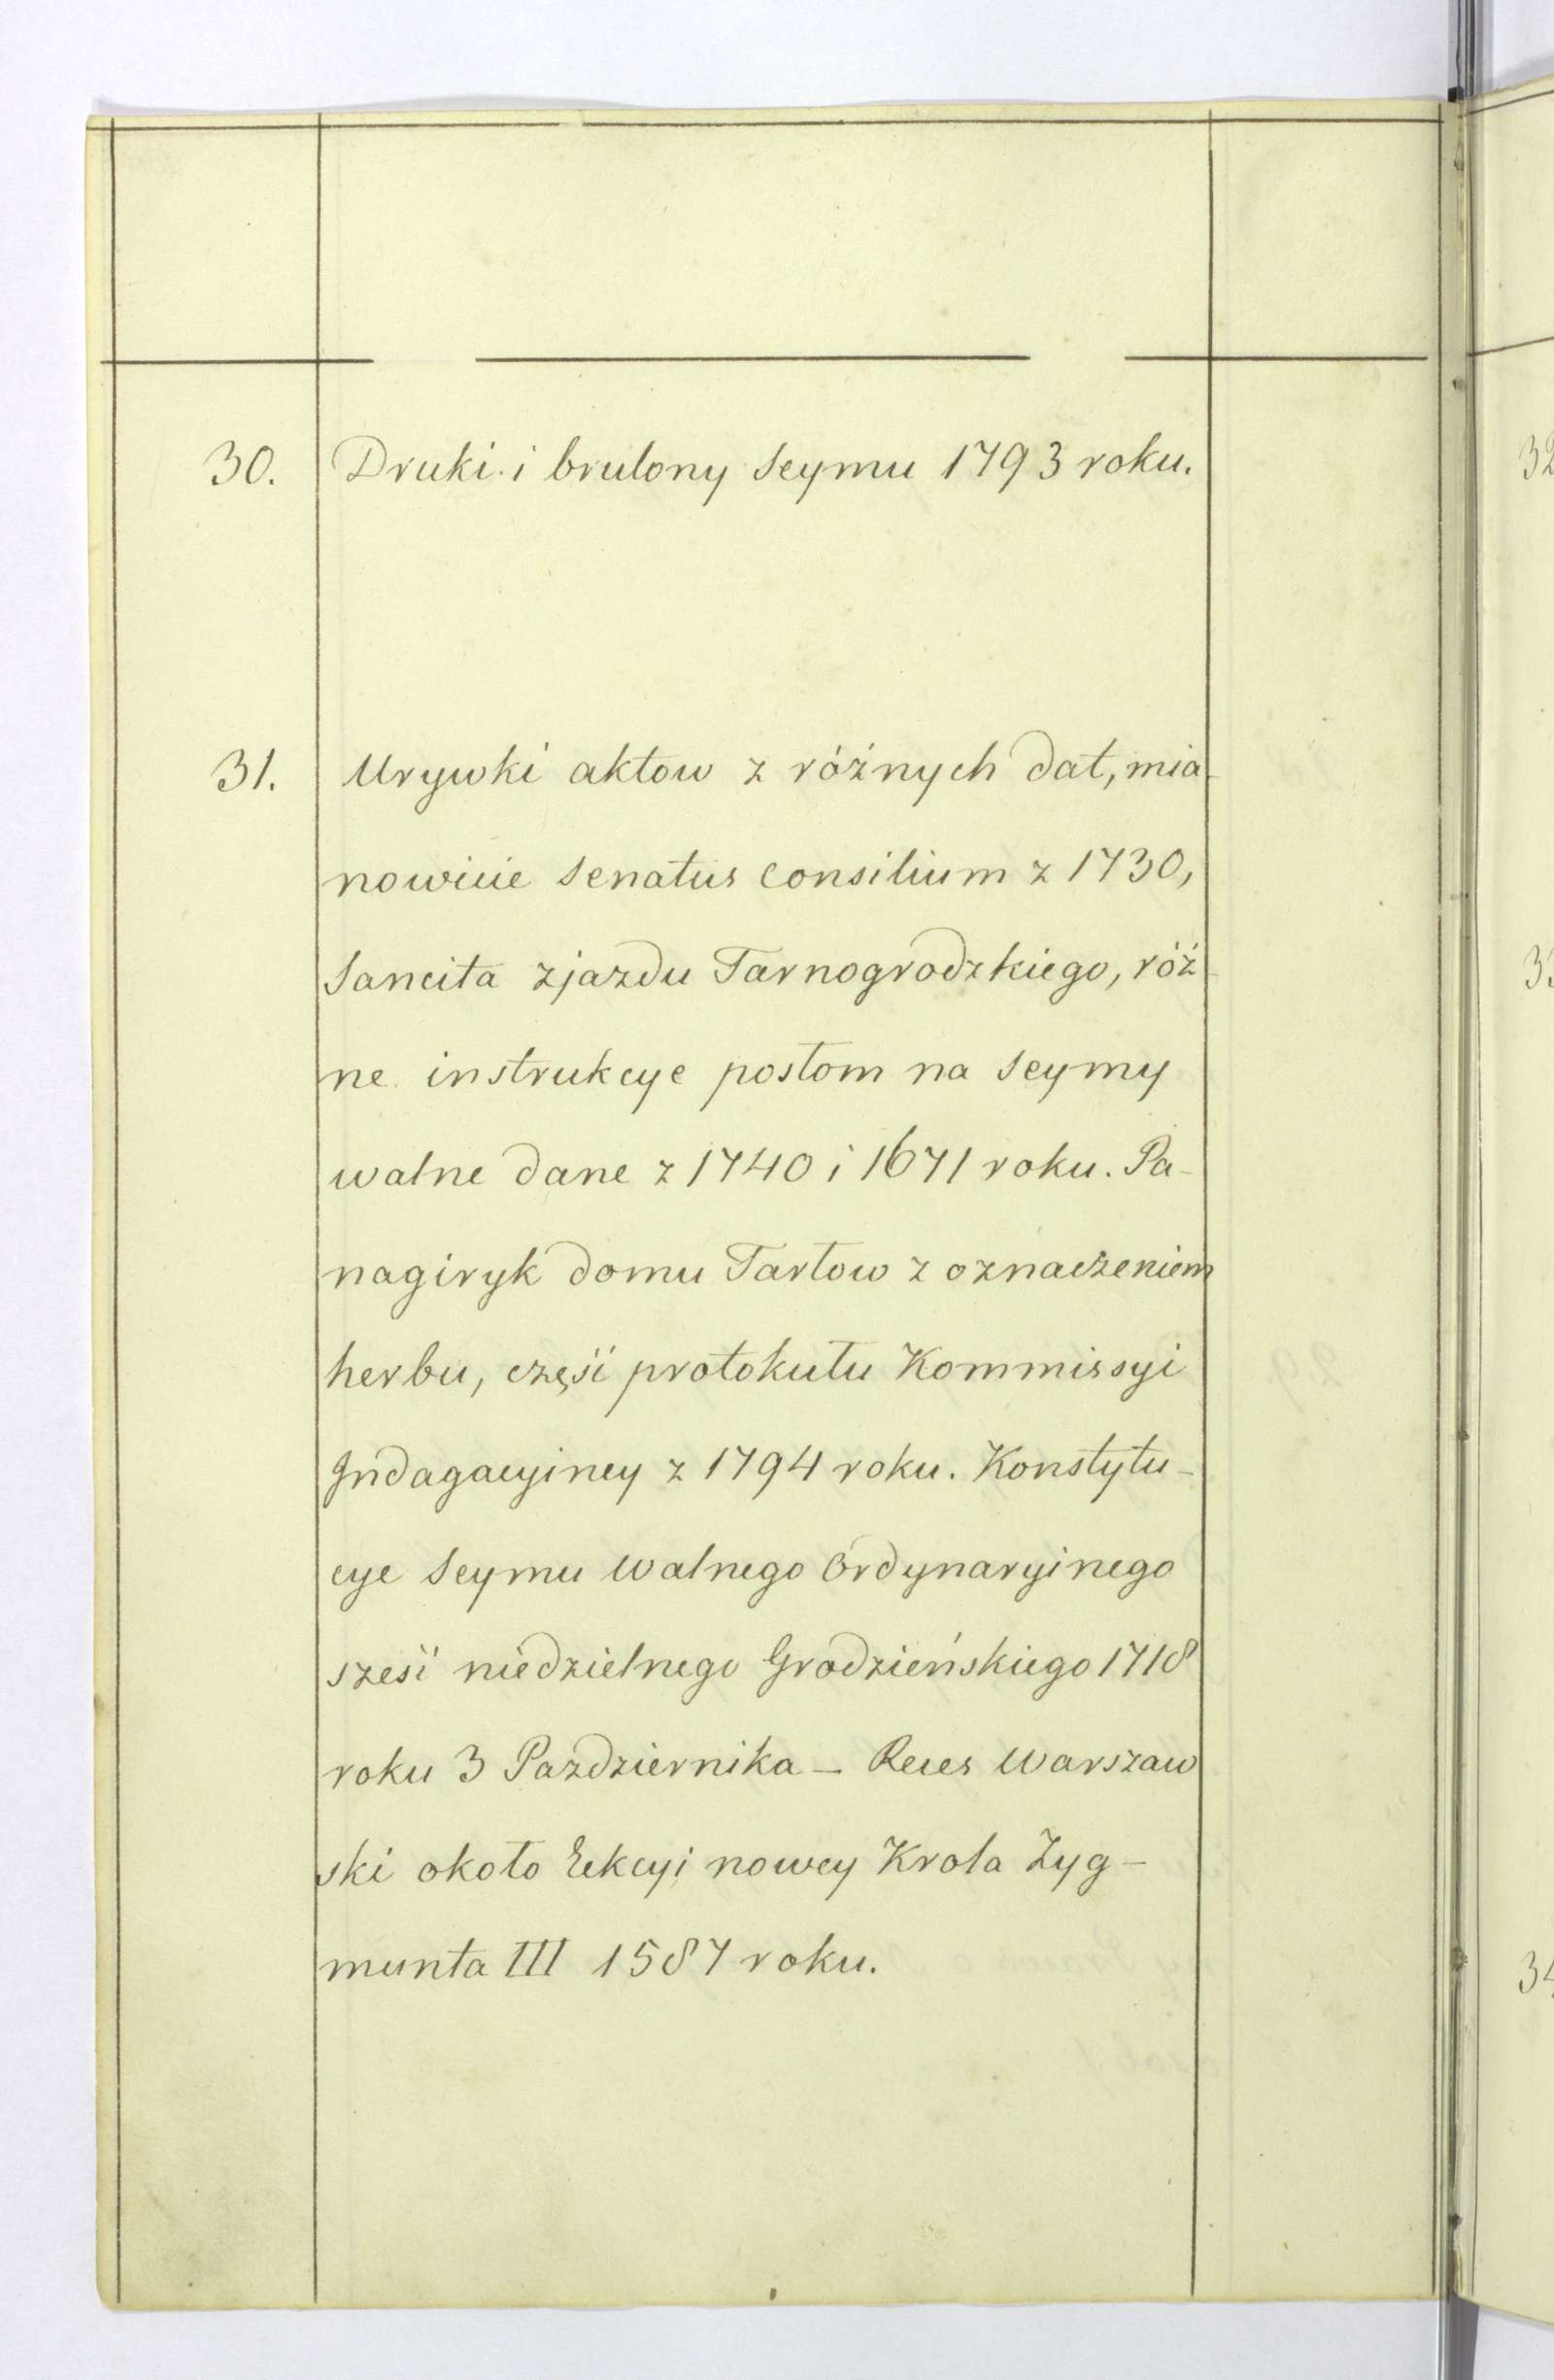 30. Druki i brulony Seymu 1793 roku.
31. Urywki aktow z różnych dat, mia-
nowicie Senatus Consilium z 1730,
Sancita zjazdu Tarnogrodzkiego, róż-
ne instrukcye posłom na Seymy
walne dane z 1740 i 1671 roku. Pa-
nagiryk domu Tarłow z oznaczeniem
herbu, część protokułu Kommissyi
Indagacyiney z 1794 roku. Konstytu-
cye Seymu Walnego Ordynaryinego
sześć niedzielnego Grodzieńskiego 1718
roku 3 Pazdziernika – Reces Warszaw
ski około Elekcyi nowey Krola Zyg-
munta III 1587 roku.
32
33
34